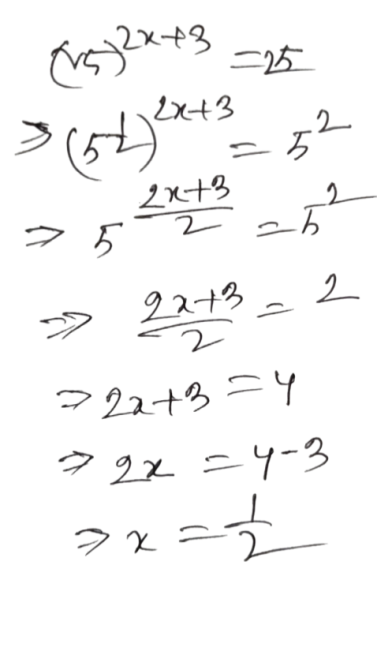 (√5)^{2x+3} = 25
⇒ (5^{1/2})^{2x+3} = 5^2
⇒ 5^{\frac{2x+3}{2}} = 5^2
⇒ \frac{2x+3}{2} = 2
⇒ 2x+3 = 4
⇒ 2x = 4-3
⇒ x = \frac{1}{2}